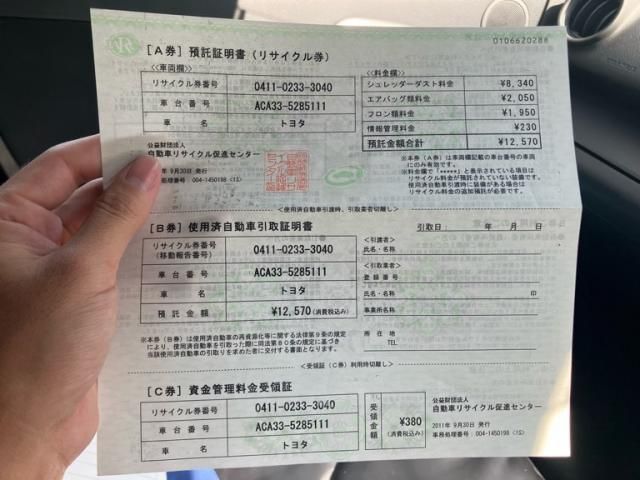 0106620288
[A券] 預託証明書 (リサイクル券)
<<車両欄>>
リサイクル券番号 0411-0233-3040
車台番号 ACA33-5285111
車名 トヨタ
<<料金欄>>
シュレッダーダスト料金 ¥8,340
エアバッグ類料金 ¥2,050
フロン類料金 ¥1,950
情報管理料金 ¥230
預託金額合計 ¥12,570
公益財団法人
自動車リサイクル促進センター
年 9月30日 発行
処理番号: 004-1450198 (1S)
※本券(A券)は車両欄記載の車台番号の車両
にのみ有効です。
※料金欄で「*****」と表示されている項目は
リサイクル料金が預託されていない装備です。
使用済自動車引渡時に装備がある場合は
リサイクル料金の追加預託が必要です。
<使用済自動車引渡時、引取業者切離し>
[B券] 使用済自動車引取証明書
引取日: 年 月 日
リサイクル券番号
(移動報告番号) 0411-0233-3040
車台番号 ACA33-5285111
車名 トヨタ
預託金額 ¥12,570 (消費税込み)
<引渡者>
氏名・名称
<引取業者>
登録番号
氏名・名称 印
事業所名称
所在地
TEL
※本券(B券)は使用済自動車の再資源化等に関する法律第9条の規定
により、使用済自動車を引取った際に同法第80条の規定に基づき
当該使用済自動車の引取りを求めた者に交付する書面となります。
<受領証(C券)利用時切離し>
[C券] 資金管理料金受領証
リサイクル券番号 0411-0233-3040
車台番号 ACA33-5285111
車名 トヨタ
受領金額 ¥380 (消費税込み)
公益財団法人
自動車リサイクル促進センター
2011年 9月30日 発行
事務処理番号: 004-1450198 (1S)